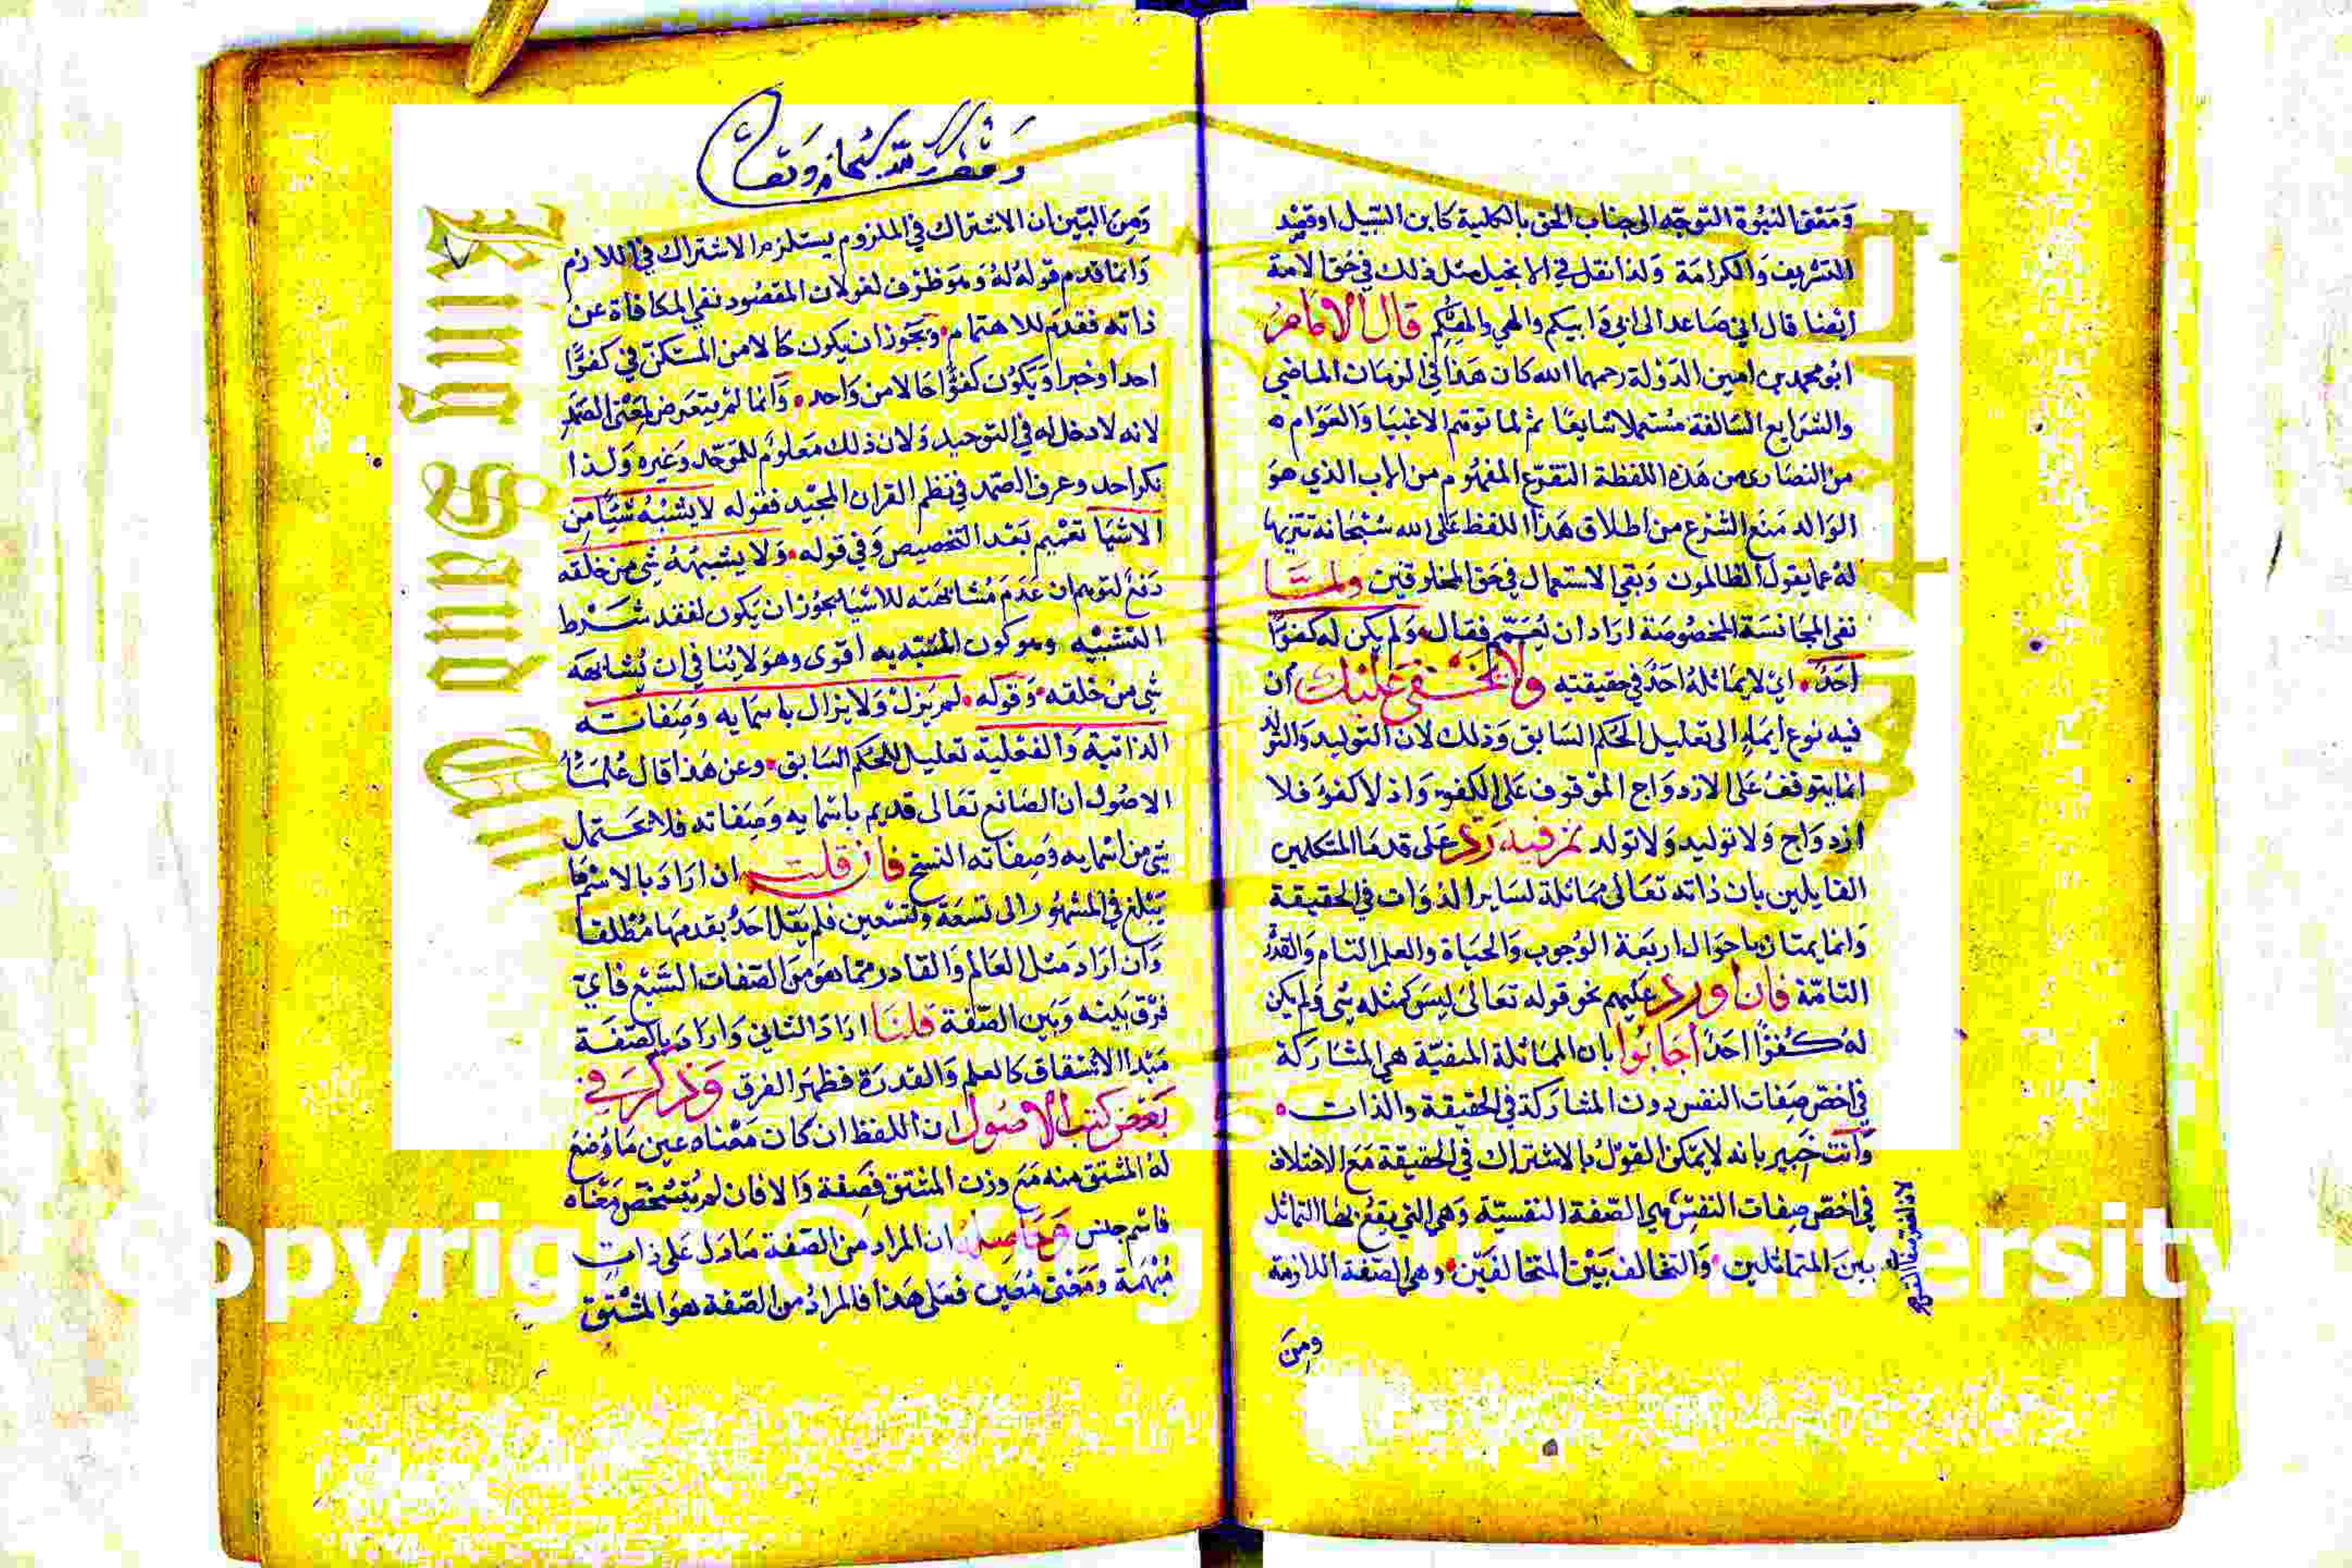 ومعنى النبوة التوجه الى جناب الحق بالكلية كابن السبيل او قصد
التشريف والكرامة ولذا نقل في الانجيل مثل ذلك في حق الامة
ايضا قال اني صاعد الى ابي وابيكم والهي والهكم قال الامام
ابو محمد بن امين الدولة رحمهما الله كان هذا في الزمان الماضي
والشرايع السالفة مستعملا شايعا ثم لما توهم الاغبيا والعوام
من النصارى من هذه اللفظة التفرع المفهوم من الاب الذي هو
الوالد منع الشرع من اطلاق هذا اللفظ على الله سبحانه تنزيها
له عما يقول الظالمون وبقي الاستعمال في حق المخلوقين ولما
نفى المجانسة المخصوصة اراد ان يعمم فقال ولم يكن له كفوا
احد اي لا يماثله احد في حقيقته ولا يخفى عليك ان
فيه نوع ايماء الى تعليل الحكم السابق وذلك لان التوليد والتولد
انما يتوقف على الازدواج الموقوف على الكفو واذ لا كفو فلا
ازدواج ولا توليد ولا تولد ثم فيه رد على قدما المتكلمين
القايلين بان ذاته تعالى مماثلة لساير الذوات في الحقيقة
وانما يمتاز باحوال اربعة الوجوب والحياة والعلم التام والقدرة
التامة فان اورد عليهم نحو قوله تعالى ليس كمثله شي ولم يكن
له كفوا احد اجابوا بان المماثلة المنفية هي المشاركة
في اخص صفات النفس دون المشاركة في الحقيقة والذات
وانت خبير بانه لا يمكن القول بالاشتراك في الحقيقة مع الاختلاف
في اخص صفات النفس هي الصفة النفسية وهي التي يقع بها التماثل
بين المتماثلين والتخالف بين المتخالفين وهي الصفة اللازمة
ومن
وقف لله سبحانه وتعالى
ومن البين ان الاشتراك في الملزوم يستلزم الاشتراك في اللازم
وانما قدم قوله له وهو ظرف لغو لان المقصود نفي المكافاة عن
ذاته فقدم للاهتمام ويجوز ان يكون حالا من المستكن في كفوا
احد او خبرا ويكون كفوا حالا من واحد وانما لم يتعرض لمعنى الصمد
لانه لا دخل له في التوحيد ولان ذلك معلوم للموحد وغيره ولذا
نكر احد وعرف الصمد في نظم القران المجيد فقوله لا يشبه شيا من
الاشيا تعميم بعد التخصيص وفي قوله ولا يشبهه شي من خلقه
دفع لتوهم ان عدم مشابهته للاشيا يجوز ان يكون لفقد شرط
التشبيه وهو كون المشبه به اقوى وهو لا ينافي ان يشابهه
شي من خلقه وقوله لم يزل ولا يزال باسمايه وصفاته
الذاتية والفعلية تعليل للحكم السابق وعن هذا قال علما
الاصول ان الصانع تعالى قديم باسمايه وصفاته فلا يحتمل
شي من اسمايه وصفاته النسخ فان قلت ان اراد بالاسم ما
يبلغ في المشهور الى تسعة وتسعين فلم يقل احد بقدمها مطلقا
وان اراد مثل العالم والقادر مما هو من الصفات السبع فاي
فرق بينه وبين الصفة قلنا اراد الثاني واراد بالصفة
مبدا الاشتقاق كالعلم والقدرة فظهر الفرق وذكر في
بعض كتب الاصول ان اللفظ ان كان معناه عين ما وضع
له المشتق منه مع وزن المشتق فصفة والا فان لم يتشخص معناه
فاسم جنس وحاصله ان المراد من الصفة ما دل على ذات
مبهمة ومعنى معين فعلى هذا فالمراد من الصفة هو المشتق
Copyright © King Saud University
King Saud
1957